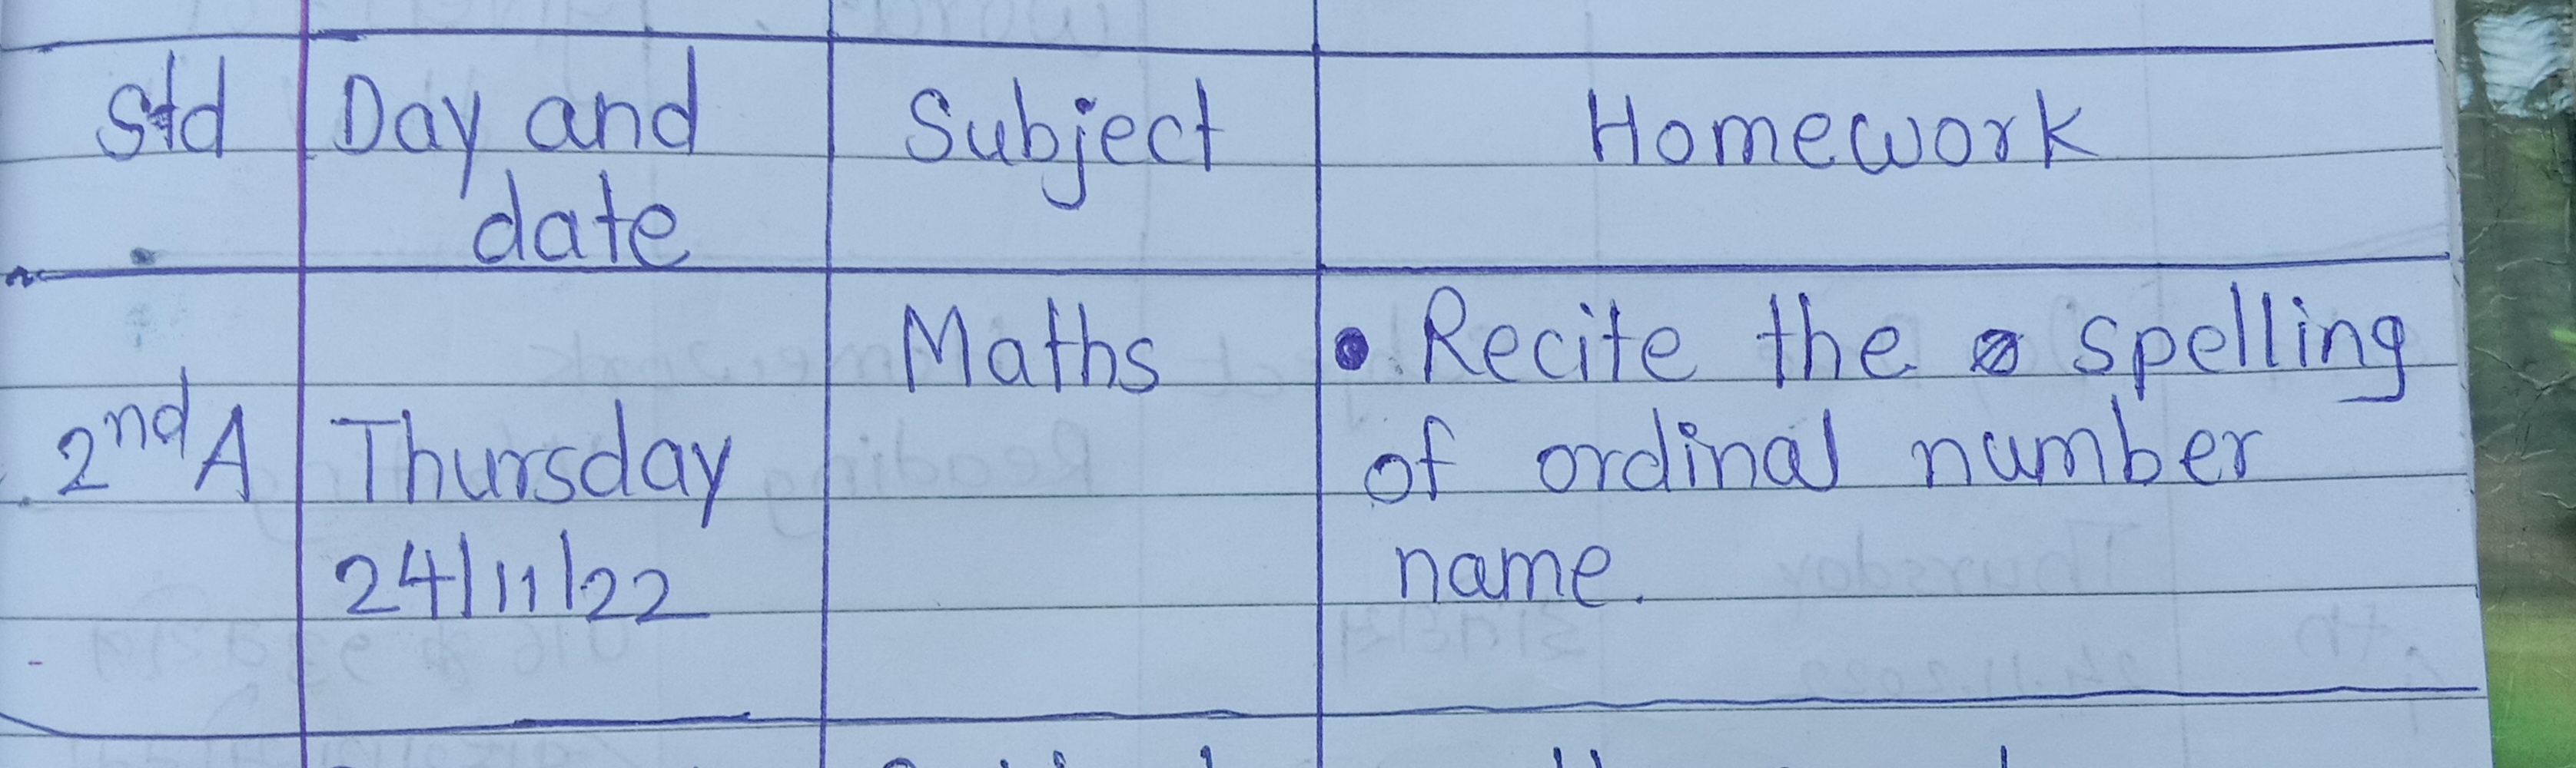 Std Day and Subject Homework
date
Maths • Recite the spelling
2nd A Thursday of ordinal number
24/11/22 name.